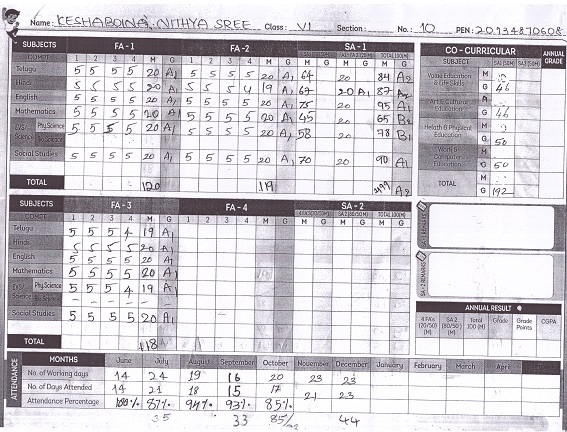 Name: KESHABOINA NITHYA SREE Class: VI Section: No.: 10 PEN: 20934870608
SUBJECTS FA - 1 FA - 2 SA - 1
1 2 3 4 M G 1 2 3 4 M G M G M G M G
Telugu 5 5 5 5 20 A1 5 5 5 5 20 A1 64 20 84 A2
Hindi 5 5 5 5 20 A1 5 5 5 4 19 A1 67 20 A1 87 A2
English 5 5 5 5 20 A1 5 5 5 5 20 A1 75 20 95 A1
Mathematics 5 5 5 5 20 A1 5 5 5 5 20 A1 45 20 65 B2
EVS/ Science Phy.Science 5 5 5 5 20 A1 5 5 5 5 20 A1 58 20 78 B1
Bio.Science
Social Studies 5 5 5 5 20 A1 5 5 5 5 20 A1 70 20 90 A1
TOTAL 120 119 A2
CO - CURRICULAR ANNUAL GRADE
SUBJECT
Value Education & Life Skills M
G 46
Art & Cultural Education M
G 46
Helath & Physical Education M
G 50
Work & Computer Education M
G 50
TOTAL M
G 192
SUBJECTS FA - 3 FA - 4 SA - 2
1 2 3 4 M G 1 2 3 4 M G M G M G M G
Telugu 5 5 5 4 19 A1
Hindi 5 5 5 5 20 A1
English 5 5 5 5 20 A1
Mathematics 5 5 5 5 20 A1
EVS/ Science Phy.Science 5 5 5 4 19 A1
Bio.Science - - - -
Social Studies 5 5 5 5 20 A1
TOTAL 118
SA - 1 REMARKS
SA - 2 REMARKS
ANNUAL RESULT
4 FAs (20/50) (M) SA 2 (80/50) (M) Total 100 (M) Grade Grade Points CGPA
ATTENDANCE
MONTHS June July August September October November December January February March April
No. of Working days 14 24 19 16 20 23 23
No. of Days Attended 14 21 18 15 17 21 23
Attendance Percentage 100% 87% 94% 93% 85%
35 33 85% 44